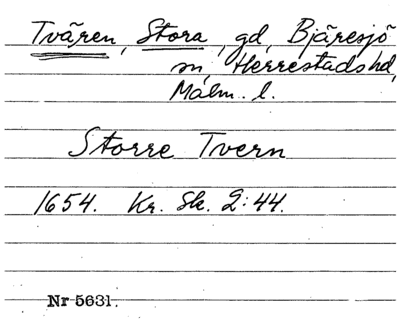 Tvären, Stora, gd, Bjäresjö
sn, Herrestads hd,
Malm. l.
Storre Tvern
1654. Kr. Sk. 2:44.
Nr 5631.